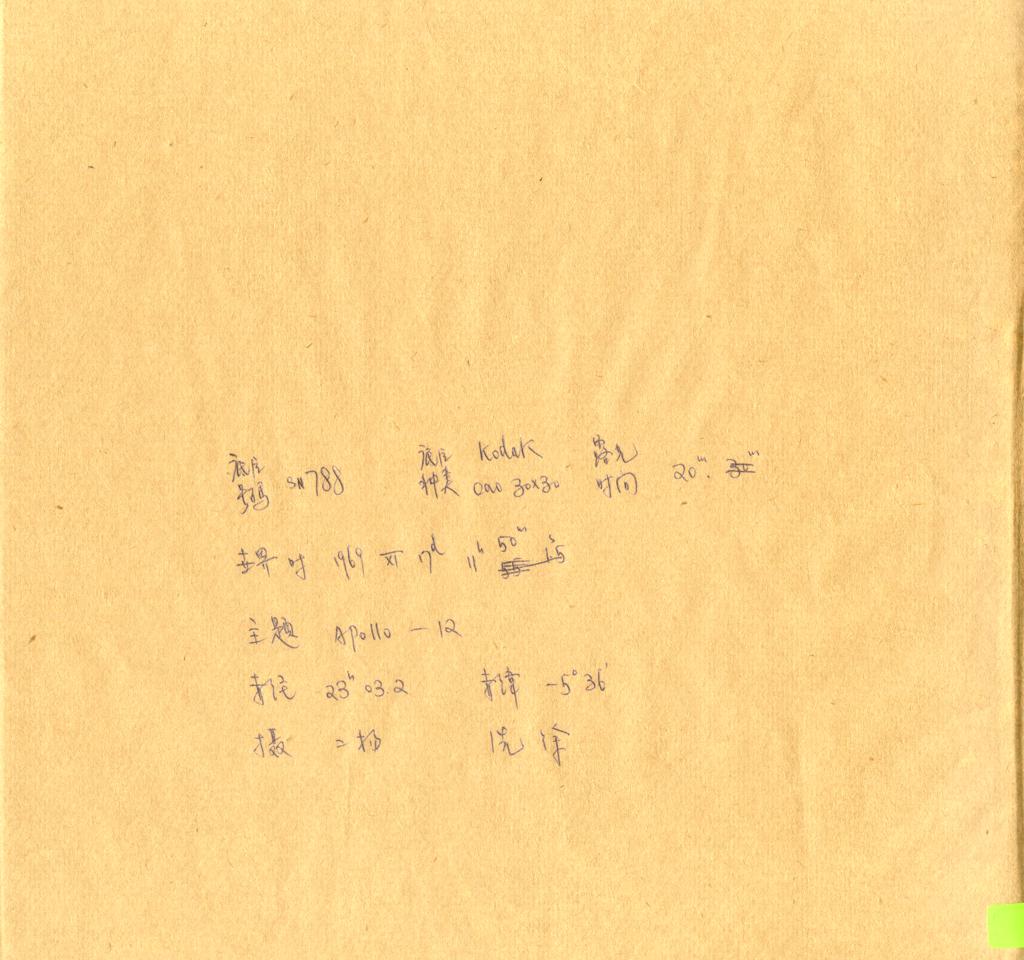 底片号码 SH788 底片种类 Kodak Oao 30x30 露光时间 20m.
世界时 1969 XI 17d 11h 50m 15s
主题 Apollo — 12
赤经 23h 03.2 赤纬 -5° 36'
摄 二杨 洗 徐